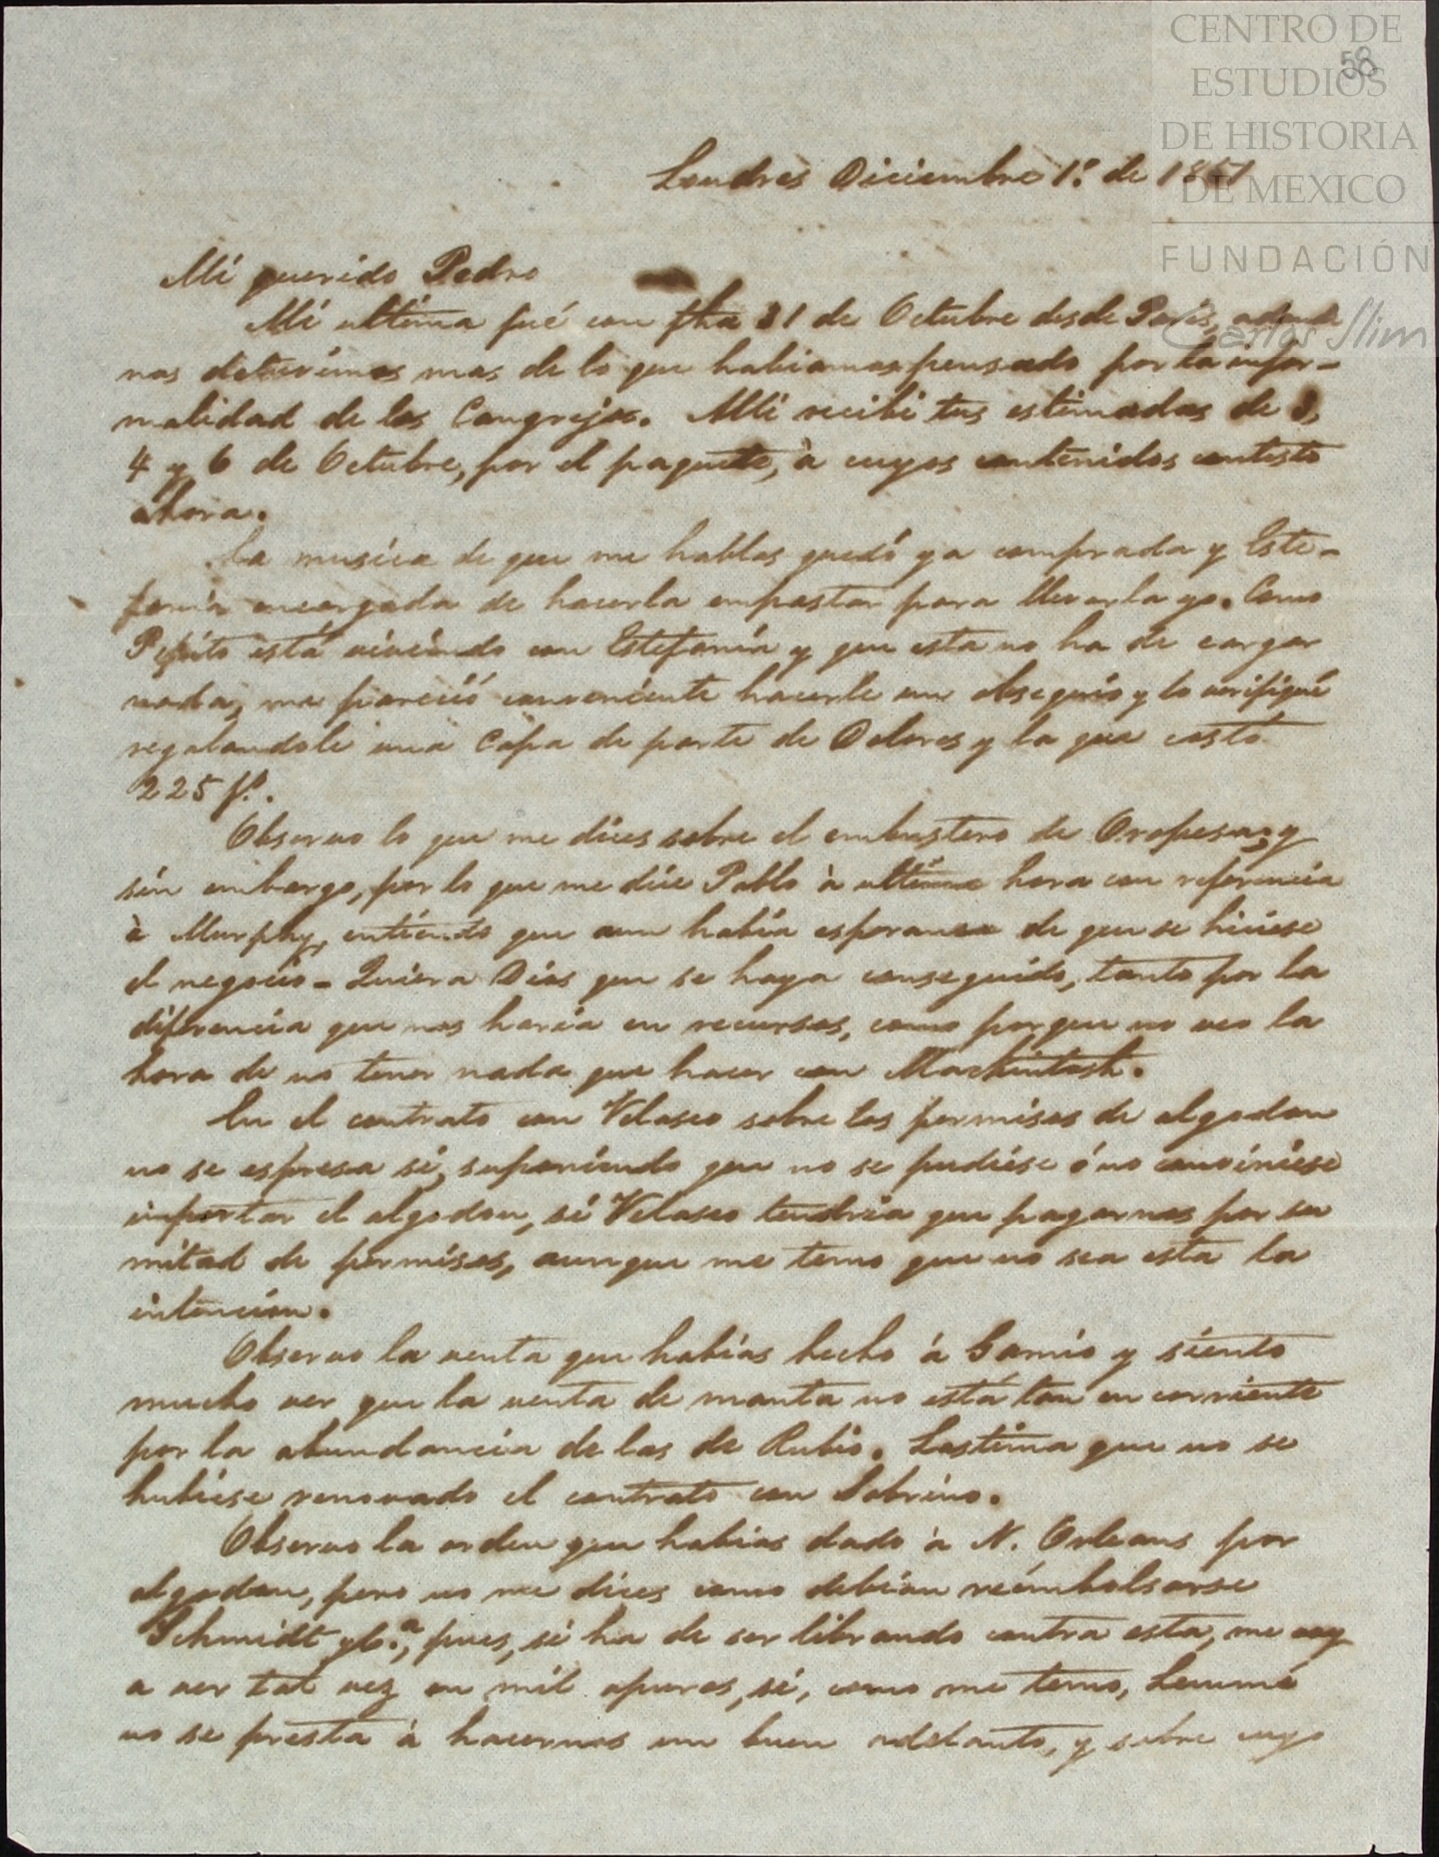 CENTRO DE
ESTUDIOS
DE HISTORIA
DE MEXICO
FUNDACIÓN
Carlos Slim
58
Londres Diciembre 1º de 1851
Mi querido Pedro
Mi ultima fué con fha 31 de Octubre desde Paris, adonde
nos detuvimos mas de lo que habiamos pensado por la infor-
malidad de los Cangrejos. Alli recibi tus estimadas de 3,
4 y 6 de Octubre, por el paquete, à cuyos contenidos contesto
ahora.
La musica de que me hablas quedó ya comprada y Este-
fania encargada de hacerla empastar para llevarla yo. Como
Pepito está viviendo con Estefanía y que esta no ha de cargar
nada, me pareció conveniente hacerle un obsequio y lo verifiqué
regalandole una Capa de parte de Dolores y la que costó
225 f.
Observo lo que me dices sobre el embustero de Oropesa, y
sin embargo, por lo que me dice Pablo à ultima hora con referencia
à Murphy, entiendo que aun había esperanza de que se hiciese
el negocio - Quiera Dios que se haya conseguido, tanto por la
diferencia que nos haria en recursos, como porque no veo la
hora de no tener nada que hacer con Mackintosh.
En el contrato con Velasco sobre los permisos de algodon
no se espresa si, suponiendo que no se pudiese ó no conviniese
importar el algodon, si Velasco tendria que pagarnos por su
mitad de permisos, aunque me temo que no sea esta la
intencion.
Observo la venta que habias hecho á Gamio y siento
mucho ver que la venta de manta no está tan en corriente
por la abundancia de las de Rubio. Lastima que no se
hubiese renovado el contrato con Sobrino.
Observo la orden que habias dado à N. Orleans por
algodon, pero no me dices como debian reémbolsarse
Schmidt y Cª, pues, si ha de ser librando contra esta, me voy
a ver tal vez en mil apuros, si, como me temo, Lemmé
no se presta à hacernos un buen adelanto, y sobre cuyo